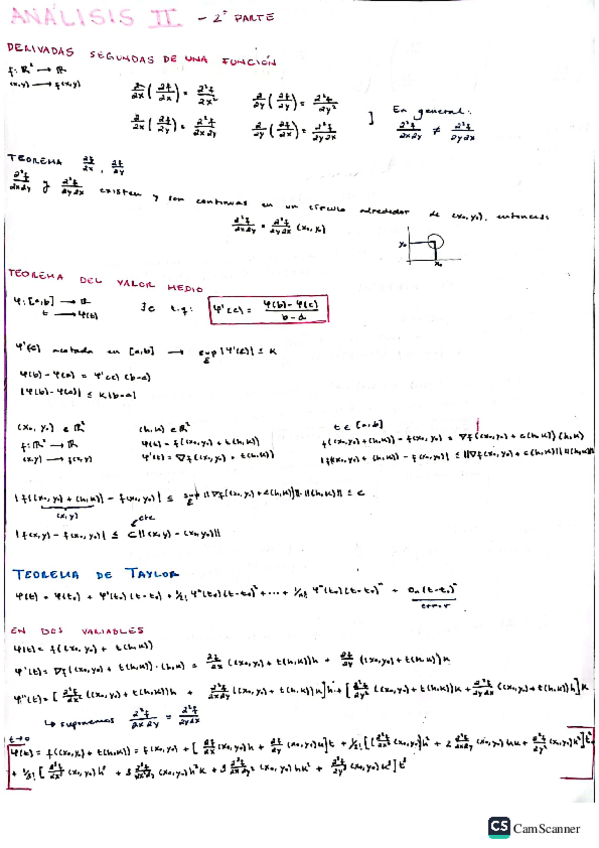 ANÁLISIS II - 2ª PARTE
DERIVADAS SEGUNDAS DE UNA FUNCIÓN
f: ℝ² → ℝ
(x,y) → f(x,y)
∂/∂x (∂f/∂x) = ∂²f/∂x² ∂/∂y (∂f/∂y) = ∂²f/∂y²
∂/∂x (∂f/∂y) = ∂²f/∂x∂y ∂/∂y (∂f/∂x) = ∂²f/∂y∂x
] En general:
∂²f/∂x∂y ≠ ∂²f/∂y∂x
TEOREMA ∂f/∂x , ∂f/∂y
∂²f/∂x∂y y ∂²f/∂y∂x existen y son continuas en un círculo alrededor de (x₀,y₀), entonces
∂²f/∂x∂y = ∂²f/∂y∂x (x₀,y₀)
y₀
x₀
TEOREMA DEL VALOR MEDIO
φ: [a,b] → ℝ
t → φ(t)
∃c t.q: φ'(c) = φ(b) - φ(c) / b - a
φ'(c) acotada en [a,b] → sup |φ'(c)| ≤ K
φ(b) - φ(a) = φ'(c) (b-a)
|φ(b) - φ(a)| ≤ K|b-a|
(x₀,y₀) ∈ ℝ² (h,k) ∈ ℝ² t ∈ [a,b]
f: ℝ² → ℝ φ(t) = f((x₀,y₀) + t(h,k)) f((x₀,y₀)+(h,k)) - f(x₀,y₀) = ∇f((x₀,y₀) + c(h,k))(h,k)
(x,y) → f(x,y) φ'(t) = ∇f((x₀,y₀) + t(h,k)) |f((x₀,y₀) + (h,k)) - f(x₀,y₀)| ≤ ||∇f((x₀,y₀) + c(h,k))|| ||(h,k)||
|f((x₀,y₀) + (h,k)) - f(x₀,y₀)| ≤ sup ||∇f((x₀,y₀) + c(h,k))|| · ||(h,k)|| ≤ c
(x,y)
cte
|f(x,y) - f(x₀,y₀)| ≤ C||(x,y) - (x₀,y₀)||
TEOREMA DE TAYLOR
φ(t) = φ(t₀) + φ'(t₀)(t-t₀) + 1/2! φ''(t₀)(t-t₀)² + ··· + 1/n! φⁿ(t₀)(t-t₀)ⁿ + 0ₙ(t-t₀)ⁿ
error
EN DOS VARIABLES
φ(t) = f((x₀,y₀) + t(h,k))
φ'(t) = ∇f((x₀,y₀) + t(h,k)) · (h,k) = ∂f/∂x ((x₀,y₀) + t(h,k))h + ∂f/∂y ((x₀,y₀) + t(h,k))k
φ''(t) = [∂²f/∂x² ((x₀,y₀) + t(h,k))h + ∂²f/∂x∂y ((x₀,y₀) + t(h,k))k]h + [∂²f/∂y² ((x₀,y₀) + t(h,k))k + ∂²f/∂y∂x ((x₀,y₀) + t(h,k))h]k
↳ suponemos ∂²f/∂x∂y = ∂²f/∂y∂x
t→0
= f((x₀,y₀) + t(h,k)) = f(x₀,y₀) + [∂f/∂x (x₀,y₀)h + ∂f/∂y (x₀,y₀)k]t + 1/2! [(∂²f/∂x² (x₀,y₀))h² + 2 ∂²f/∂x∂y (x₀,y₀)hk + ∂²f/∂y² (x₀,y₀)k²]t²
+ 1/3! [∂³f/∂x³ (x₀,y₀)h³ + 3 ∂³f/∂x²∂y (x₀,y₀)h²k + 3 ∂³f/∂x∂y² (x₀,y₀)hk² + ∂³f/∂y³ (x₀,y₀)k³]t³
CS CamScanner